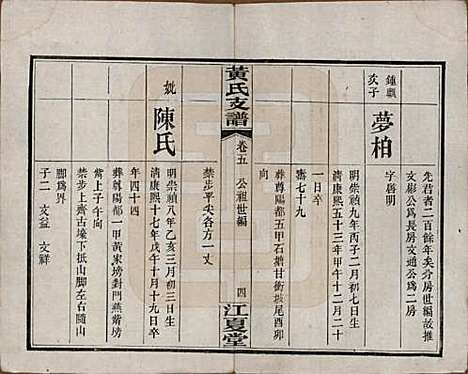 鍾麒
次子
夢柏
先君者二百餘年矣分房世編故推
文彩公為長房文通公為二房
字啓明
明崇禎九年丙子二月初七日生
清康熙五十三年甲午十二月二十
一日卒
壽七十九
葬尊陽都五甲石塘甘衝坡尾酉卯
向
禁步平尖各方一丈
黃氏支譜
卷五
公祖世編
四
江夏堂
妣
陳氏
明崇禎八年乙亥三月初三日生
清康熙十七年戊午十月十九日卒
年四十四
葬尊陽都一甲黃家塝對門燕
觜上子午向
禁步上齊古墈下抵山腳左右隨山
腳為界
子二 文益 文祥